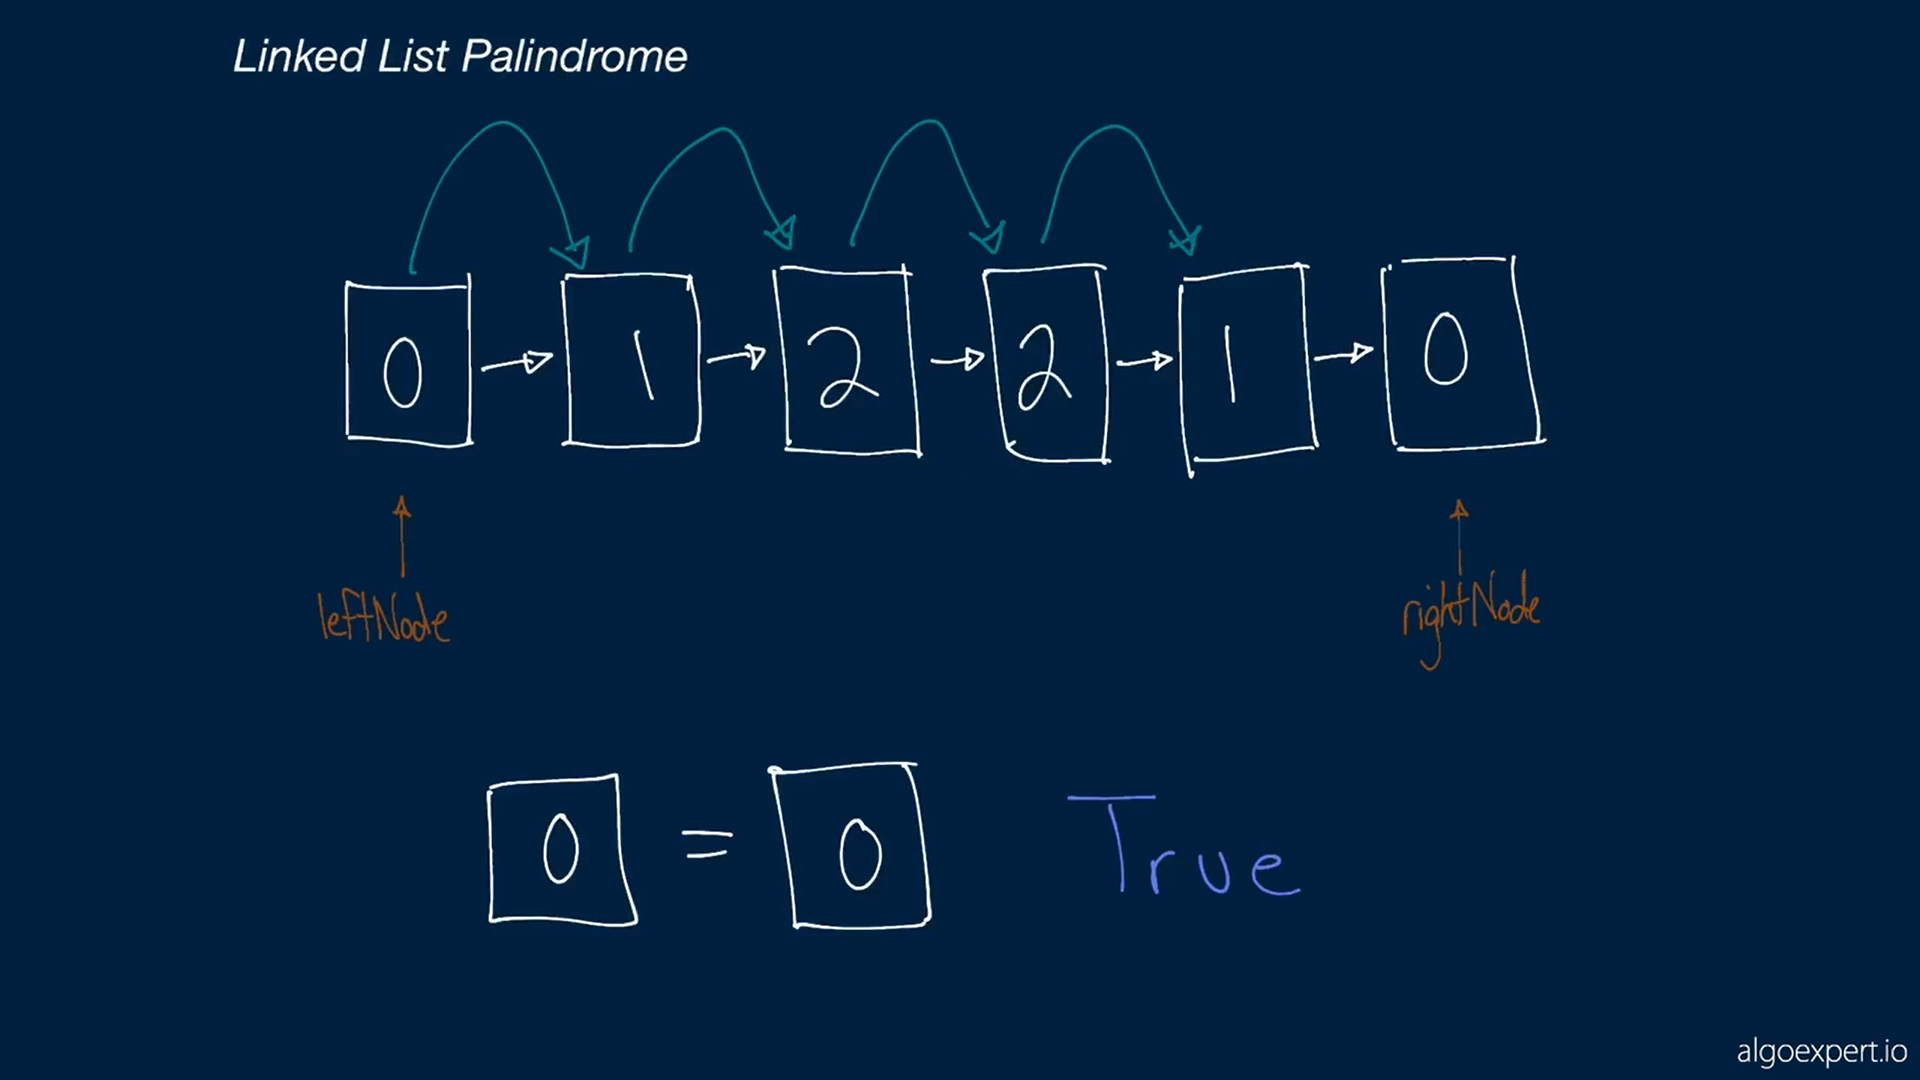 Linked List Palindrome
0 1 2 2 1 0
leftNode rightNode
0 = 0 True
algoexpert.io